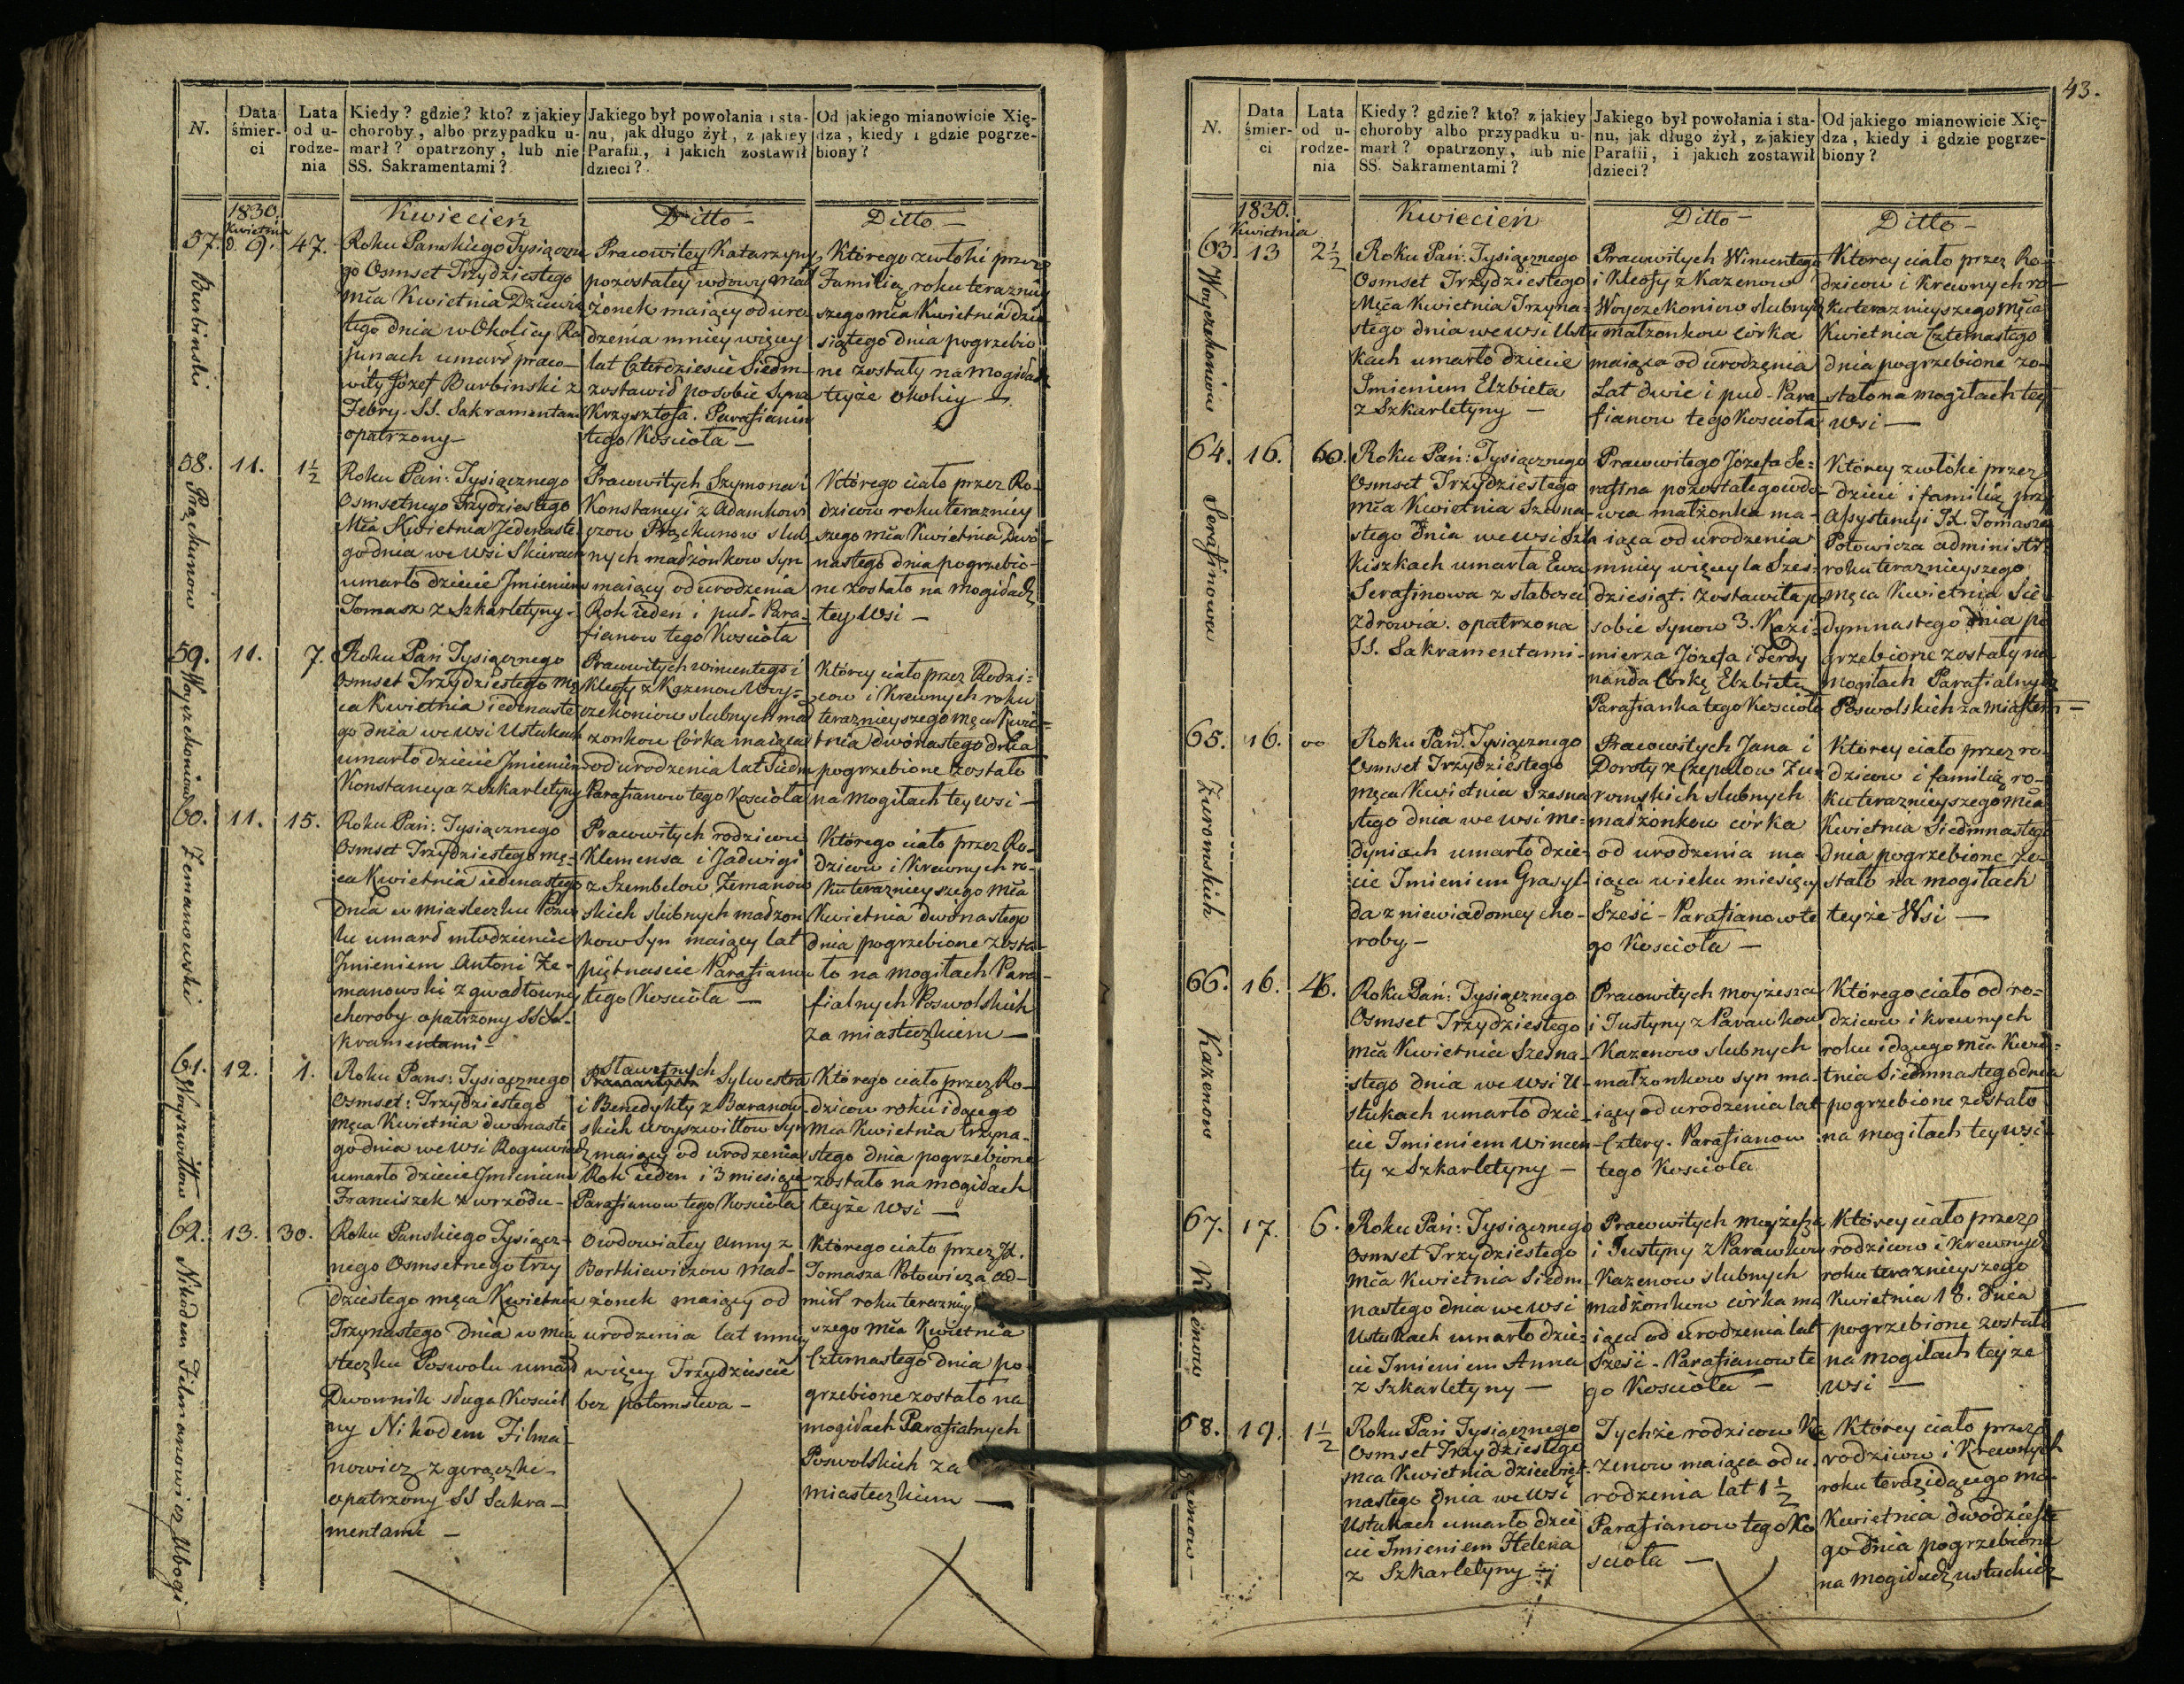 N.
Data śmier-
ci
Lata od u-
rodze-
nia
Kiedy? gdzie? kto? z jakiey
choroby, albo przypadku u-
marł? opatrzony, lub nie
SS. Sakramentami?
Jakiego był powołania i sta-
nu, jak długo żył, z jakiey
Parafii, i jakich zostawił
dzieci?
Od jakiego mianowicie Xię-
dza, kiedy i gdzie pogrze-
biony?
1830.
Kwietnia
Kwiecień
Ditto –
Ditto –
57. d. 9. 47.
Burbinski
Roku Panskiego Tysiączne
go Osmset Trzydziestego
mca Kwietnia Dziewią
tego dnia w Okolicy Ra
junach umarł praco–
wity Józef Burbinski z
Febry. SS. Sakramentami
opatrzony –
Pracowitey Katarzyny
pozostałey wdowy mał
żonek maiący od uro
dzenia mniey więcey
lat Czterdzieście Siedm–
zostawił po sobie Syna
Krzysztofa. Parafianin
tego Kościoła –
Którego zwłoki przez
Familią roku terazniey
szego mca Kwietnia dzie
siątego dnia pogrzebio
ne zostały na Mogiłach
teyże okolicy –
58. 11. 1½
Prąckunow
Roku Pań: Tysiącznego
Osmsetnego Trzydziestego
Mca Kwietnia Jedenaste
go dnia we Wsi Skierach
umarło dziecie Jmieniem
Tomasz z Szkarletyny –
Pracowitych Szymona i
Konstancyi z Adamkowi
czow Prąckunow slub
nych małżonkow Syn
maiący od urodzenia
Rok ieden i puł. Para-
fianow tego Kościoła
Którego ciało przez Ro-
dzicow roku terazniey
szego mca Kwietnia Dwó
nastego dnia pogrzebio-
ne zostało na mogiłach
tey Wsi –
59. 11. 7.
Woyczekoniow
Roku Pań Tysiącznego
Osmset Trzydziestego Mę
ca Kwietnia iedenaste
go dnia we Wsi Ustukach
umarło dziecie Jmieniem
Konstancya z Szkarletyny
Pracowitych Wincentego i
Kleofy z Kazenow Woy=
czekoniow slubnych mał
żonkow Córka maiąca
od urodzenia lat Siedm
Parafianow tego Kościoła
Którey ciało przez Rodzi=
cow i Krewnych roku
teraznieyszego męca Kwie=
tnia dwónastego dnia
pogrzebione zostało
na Mogiłach tey wsi –
60. 11. 15.
Zemanowski
Roku Pań: Tysiącznego
Osmset Trzydziestego mę=
ca Kwietnia iedenastego
Dnia w miasteczku Poswo
lu umarł młodzieniec
Jmieniem Antoni Że-
manowski z gwałtowney
choroby opatrzony SS Sa-
kramentami –
Pracowitych rodzicow
Klemensa i Jadwigi
z Szembelow Żemanow
skich slubnych małżon
kow Syn maiący lat
piętnaście Parafianow
tego Kościoła –
Którego ciało przez Ro-
dzicow i Krewnych ro-
ku teraznieyszego mca
Kwietnia dwónastego
dnia pogrzebione zosta-
ło na mogiłach Para-
fialnych Poswolskich
za miasteczkiem –
61. 12. 1.
Woyszwiłłow
Roku Pans: Tysiącznego
Osmset: Trzydziestego
męca Kwietnia dwónaste
go dnia we Wsi
umarło dziecie Jmieniem
Franciszek z wrzodu –
sławetnych
Sylwestra
i Benedykty z Baranow-
skich Woyszwiłłow Syn
maiący od urodzenia
Rok ieden i 3 miesiące
Parafianow tego Kościoła
Którego ciało przez Ro-
dzicow roku idącego
mca Kwietnia trzyna-
stego dnia pogrzebione
zostało na mogiłach
teyże wsi –
62. 13. 30.
Nikodem Filmanowicz Ubogi
Roku Panskiego Tysiącz-
nego Osmsetnego trzy
dziestego męca Kwietnia
Trzynastego Dnia w mia
steczku Poswolu umarł
Dwornik sługa Kościel
ny Nikodem Filma-
nowicz z gorączki –
opatrzony SS Sakra–
mentami –
Owdowiałey Anny z
Bortkiewiczow mał-
żonek maiący od
urodzenia lat mniey
więcey Trzydzieście
bez potomstwa –
Którego ciało przez JX.
Tomasza Potowicza ad-
mist roku teraznieÿ
szego mca Kwietnia
Czternastego dnia po-
grzebione zostało na
mogiłach Parafialnych
Poswolskich za
miasteczkiem –
43.
N.
Data śmier-
ci
Lata od u-
rodze-
nia
Kiedy? gdzie? kto? z jakiey
choroby albo przypadku u-
marł? opatrzony, lub nie
SS. Sakramentami?
Jakiego był powołania i sta-
nu, jak długo żył, z jakiey
Parafii, i jakich zostawił
dzieci?
Od jakiego mianowicie Xię-
dza, kiedy i gdzie pogrze-
biony?
1830.
Kwietnia
Kwiecień
Ditto –
Ditto –
63. 13 2½
Woyczekoniow
Roku Pań: Tysiącznego
Osmset Trzydziestego
Męca Kwietnia Trzyna=
stego dnia we wsi Ustu
kach umarło dziecie
Imieniem Elżbieta
z Szkarletyny –
Pracowitych Wincentego
i Kleofy z Kazenow
Woyczekoniow slubnych
małżonkow córka
maiąca od urodzenia
Lat dwie i puł – Para
fianow tego Kościoła
Którey ciało przez Ro-
dzicow i Krewnych ro–
ku teraznieyszego Męca
Kwietnia Czternastego
dnia pogrzebione zo-
stało na mogiłach tey
wsi –
64. 16. 60.
Serafinowa
Roku Pań: Tysiącznego
Osmset Trzydziestego
mca Kwietnia Szesna-
stego dnia we wsi Szła
kiszkach umarła Ewa
Serafinowa z słabosci
zdrowia. opatrzona
SS. Sakramentami –
Pracowitego Józefa Se=
rafina pozostałego wdo-
wca małżonka ma-
iąca od urodzenia
mniey więcey la Szes=
dziesiąt. Zostawiła po
sobie synow 3. Kazi=
mierza Józefa i Ferdy
nanda Córkę Elżbietę
Parafianka tego Kościoła
Którey zwłoki przez
dzieci i familią przy
Assystencyi JX. Tomasza
Potowicza administr:
roku teraznieyszego
męca Kwietnia Sie-
dymnastego dnia po
grzebione zostały na
mogiłach Parafialnych
Poswolskich za miastem –
65. 16. 00
Żuromskich
Roku Pań. Tysiącznego
Osmset Trzydziestego
Męca Kwietnia Szesna
stego dnia we wsi Me=
dyniach umarło dzie-
cie Imieniem Grasyl-
da z niewiadomey cho-
roby –
Pracowitych Jana i
Doroty z Czepulow Żu=
romskich slubnych
małżonkow córka
od urodzenia ma
iąca wieku miesięcy
Sześć – Parafianow te
go Kościoła –
Którey ciało przez ro-
dzicow i familią ro-
ku teraznieyszego mca
Kwietnia Siedmnastego
dnia pogrzebione zo-
stało na mogiłach
teyże Wsi –
66. 16. 4.
Kazenow
Roku Pań: Tysiącznego
Osmset Trzydziestego
mca Kwietnia Szesna-
stego dnia we wsi U-
stukach umarło dzie-
cie Imieniem Wincen-
ty z Szkarletyny –
Pracowitych Moyżesza
i Justyny z Parawkow
Kazenow slubnych
małżonkow syn ma-
iący od urodzenia lat
Cztery. Parafianow
tego Kościoła
Którego ciało od ro=
dzicow i krewnych
roku idącego mca Kwie-
tnia Siedmnastego dnia
pogrzebione zostało
na mogiłach tey wsi
67. 17. 6.
Roku Pań: Tysiącznego
Osmset Trzydziestego
Mca Kwietnia Siedm-
nastego dnia we wsi
Ustukach umarło dzie=
cie Imieniem Anna
z Szkarletyny –
Pracowitych Moyżesza
i Justyny z Parawkow
Kazenow slubnych
małżonkow córka ma
iąca od urodzenia lat
Sześć – Parafianow te
go Kościoła –
Którey ciało przez
rodzicow i krewnych
roku teraznieyszego
Kwietnia 18. dnia
pogrzebione zostało
na mogiłach teyże
wsi –
68. 19. 1½
Roku Pań Tysiącznego
Osmset Trzydziestego
mca Kwietnia dziewięt-
nastego dnia we wsi
Ustukach umarło dzie
cie Imieniem Helena
z Szkarletyny –
Tychże rodzicow Ka
zenow maiąca od u-
rodzenia lat 1½
Parafianow tego Ko
scioła –
Którey ciało przez
rodzicow i Krewnych
roku teraz idącego mca
Kwietnia dwódzieste
go dnia pogrzebione
na mogiłach ustuckich